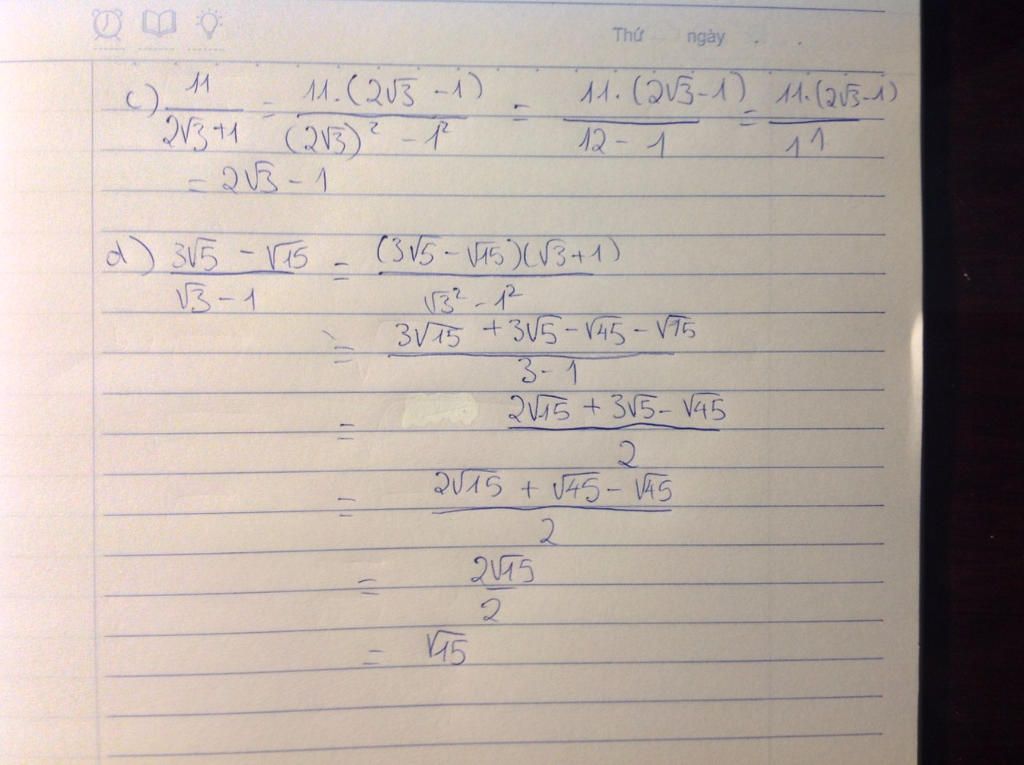 Thứ ngày
c) 11/(2√3+1) = 11.(2√3 - 1)/((2√3)² - 1²) = 11.(2√3-1)/(12 - 1) = 11.(2√3-1)/11
= 2√3 - 1
d) (3√5 - √15)/(√3 - 1) = (3√5 - √15)(√3+1)/(√3² - 1²)
= (3√15 + 3√5 - √45 - √15)/(3 - 1)
= (2√15 + 3√5 - √45)/2
= (2√15 + √45 - √45)/2
= 2√15/2
= √15